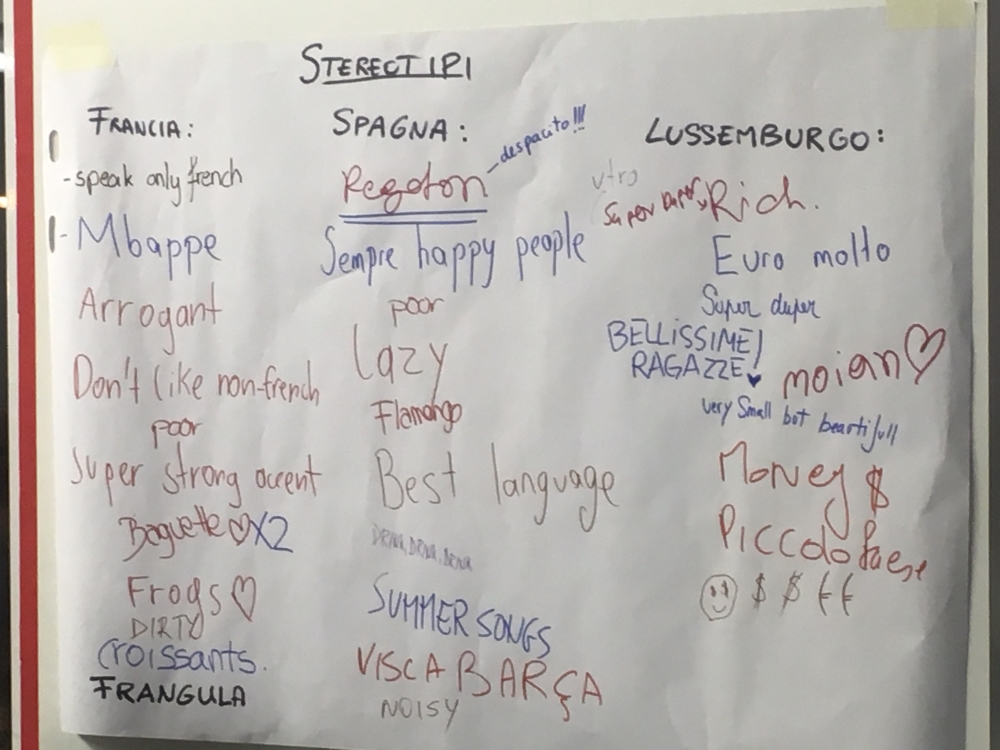 STEREOTIPI
FRANCIA:
-speak only french
- Mbappe
Arrogant
Don't like non-french
poor
Super strong accent
Baguette ♡X2
Frogs ♡
DIRTY
croissants.
FRANGULA
SPAGNA:
Regeton - despacito!!!
Sempre happy people
poor
Lazy
Flamango
Best language
SUMMER SONGS
VISCA BARÇA
NOISY
LUSSEMBURGO:
Super Rich.
Euro molto
Super duper
BELLISSIME!
RAGAZZE! ♥
moian ♡
very small bot beartifull
Money $
Piccolo Paese
☺ $ $ € €